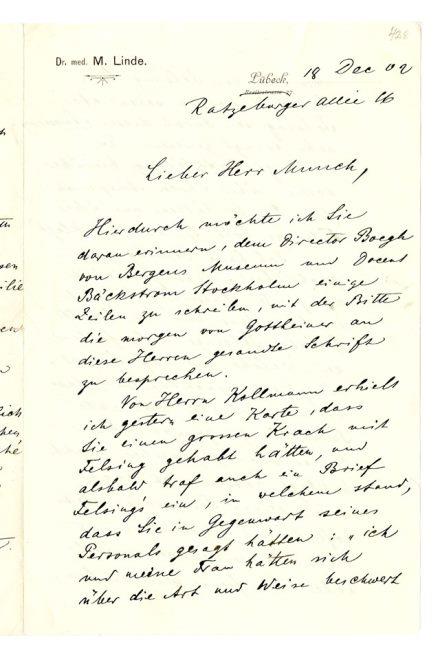 428
Dr. med. M. Linde.
Lübeck, 18 Dec 02
Ratzeburger Allee 16
Lieber Herr Munch,
Hierdurch möchte ich Sie
daran erinnern, dem Director Boegh
von Bergens Museum und Docent
Bäckström Stockholm einige
Zeilen zu schreiben, mit der Bitte
die morgen von Gottheiner an
diese Herren gesandte Schrift
zu besprechen.
Von Herrn Kollmann erhielt
ich gestern eine Karte, dass
Sie einen grossen Krach mit
Felsing gehabt hätten, und
alsbald traf auch ein Brief
Felsing's ein, in welchem stand,
dass Sie in Gegenwart seines
Personals gesagt hätten: „ich
und meine Frau hätten sich
über die Art und Weise beschwert